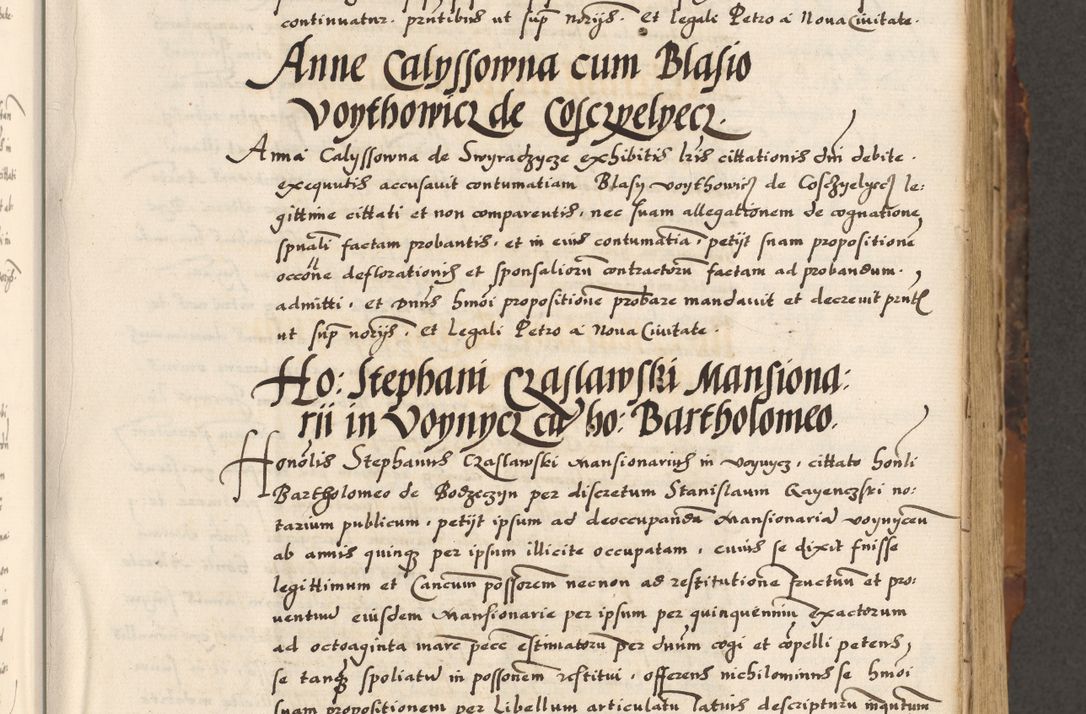 continuatur. pñtibus ut sup̃ notrijs. Et legali Petro a Nova Civitate.
Anne Calyssowna cum Blasio
Voythowicz de Cosczyelyecz.
Anna Calyssowna de Swyradzycze exhibitis lr̃is cittationis dñi debite.
exequutis accusavit contumatiam Blasÿ voythowicz de Cosczyelyecz le:
gittime cittati et non comparentis, nec suam allegationem de cognatione
spũali factam probantis, et in eius contumatia, petÿt suam propositione
occõne deflorationis et sponsaliorũ contractorũ factam ad probandum.
admitti, et Dñus hmõi propositionẽ probare mandavit et decrevit pñtẽ
ut sup̃ notrijs. Et Legali Petro a Nova Civitate.
Ho: Stephani Czaslawski Mansiona:
rii in Voynycz cũ ho: Bartholomeo.
Honõlis Stephanus Czaslawski Mansionarius in voynycz, cittato honli
Bartholomeo de Bodzeczyn per discretum Stanislaum Gayenczski no:
tarium publicum, petÿt ipsum ad deoccupandã Mansionariã voynyceñ
ab annis quinq̃ per ipsum illicite occupatam, cuius se dixit fuisse
legittimum et Cancum possorem necnon ad restitutionẽ fructuũ et pro:
ventuũ eiusdem Mansionarie per ipsum per quinquenniũ exactorum
ad octoaginta marc̃ pecc̃ estimatorũ per dñum cogi et cõpelli petens,
se tanq̃ spoliatũ in possonem restitui, offerens nichilominus se hmõi
suam propositionem per Libellum articulatũ latius descripturũ inquantum